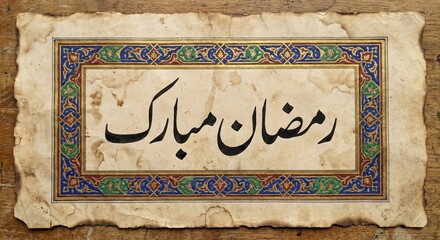 رمضان مبارک